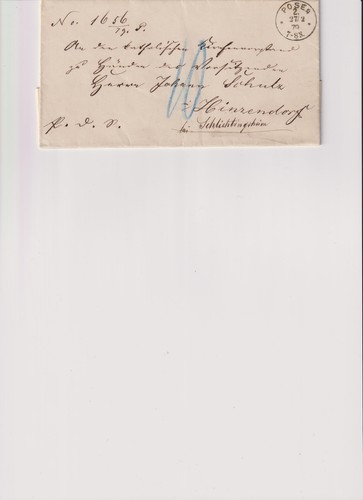 No. 1656/79. P.
POSEN
27/2
79
7-8N.
An den katholischen Kirchenvorstand
zu Händen des Vorsitzenden
Herrn Johann Schulz
10
in Hinzendorf
P. d. S.
bei Schlichtingsheim